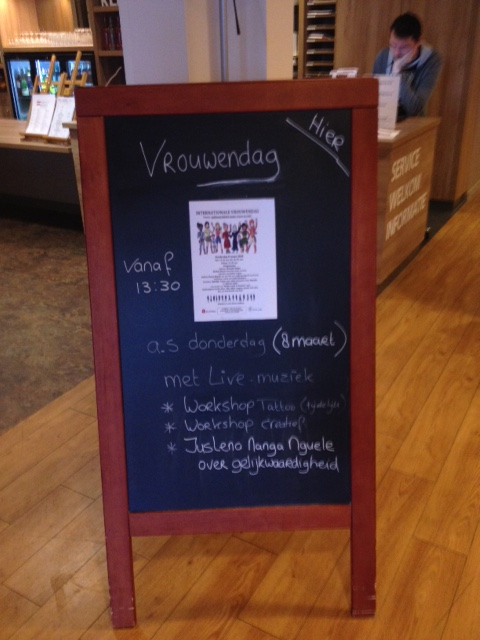 Hier
Vrouwendag
INTERNATIONALE VROUWENDAG
Vanaf
13:30
a.s donderdag (8 maart)
met Live-muziek
* Workshop Tattoo (tijdelijk)
* Workshop creatief
* JusLeno Nanga Nguele
over gelijkwaardigheid
SERVICE
WELKOM
INFORMATIE